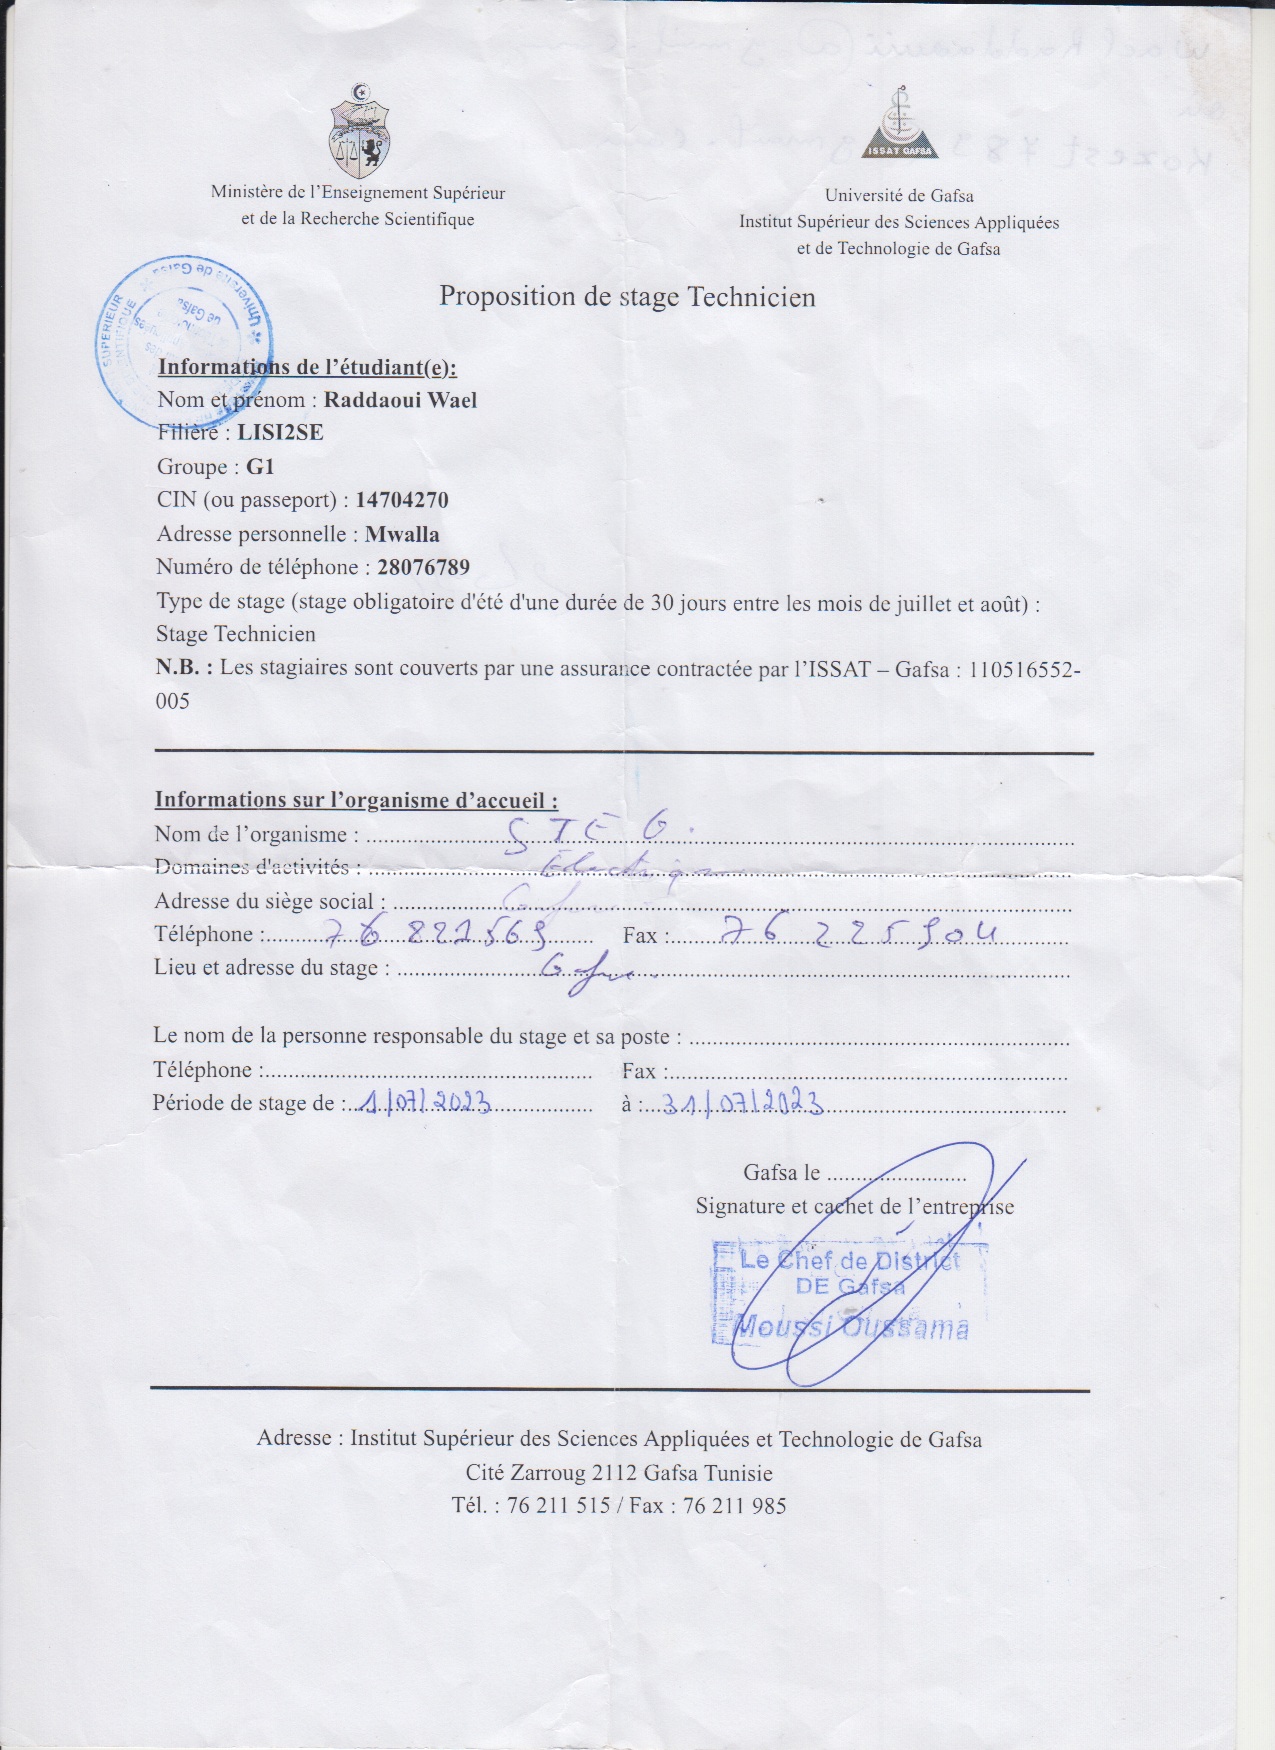 Ministère de l'Enseignement Supérieur
et de la Recherche Scientifique
ISSAT GAFSA
Université de Gafsa
Institut Supérieur des Sciences Appliquées
et de Technologie de Gafsa
Proposition de stage Technicien
Informations de l'étudiant(e):
Nom et prénom : Raddaoui Wael
Filière : LISI2SE
Groupe : G1
CIN (ou passeport) : 14704270
Adresse personnelle : Mwalla
Numéro de téléphone : 28076789
Type de stage (stage obligatoire d'été d'une durée de 30 jours entre les mois de juillet et août) :
Stage Technicien
N.B. : Les stagiaires sont couverts par une assurance contractée par l'ISSAT – Gafsa : 110516552-
005
Informations sur l'organisme d'accueil :
Nom de l'organisme : STEG.
Domaines d'activités : Électrique
Adresse du siège social : Gafsa
Téléphone : 76 221569 Fax : 76 225904
Lieu et adresse du stage : Gafsa.
Le nom de la personne responsable du stage et sa poste :
Téléphone : Fax :
Période de stage de : 1/07/2023 à : 31/07/2023
Gafsa le
Signature et cachet de l'entreprise
Le Chef de District
DE Gafsa
Moussi Oussama
Adresse : Institut Supérieur des Sciences Appliquées et Technologie de Gafsa
Cité Zarroug 2112 Gafsa Tunisie
Tél. : 76 211 515 / Fax : 76 211 985